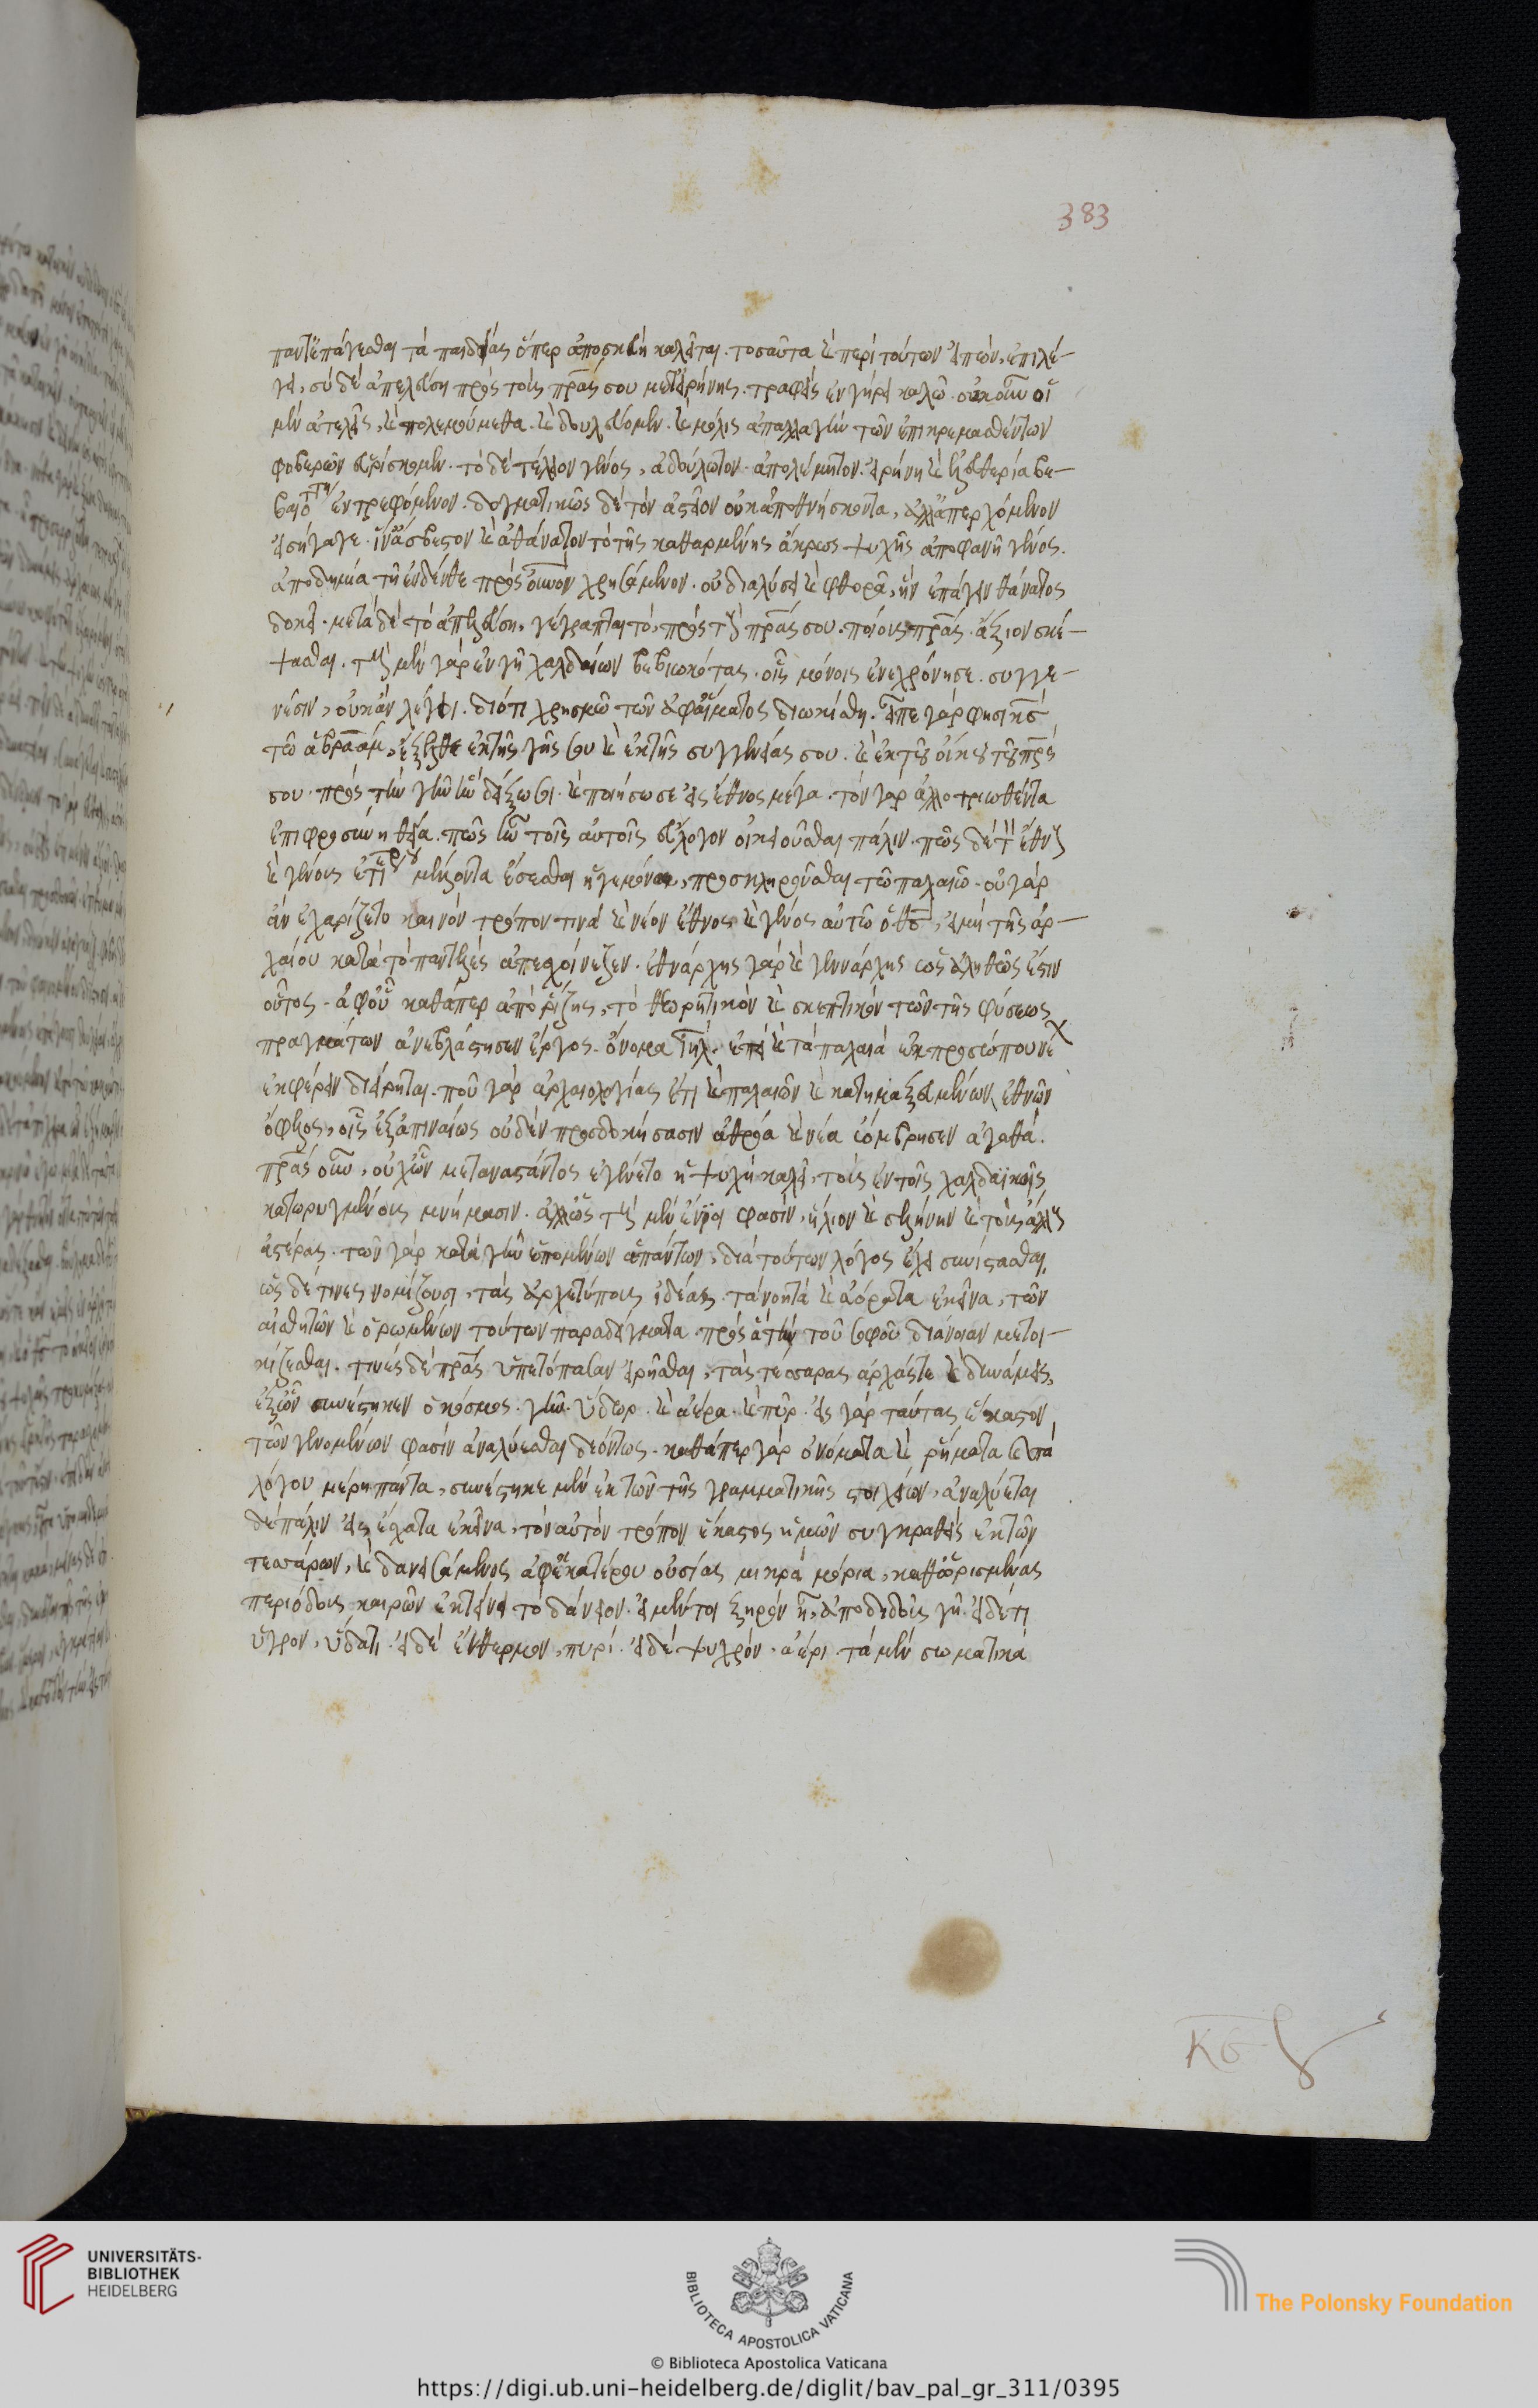 383
παντ' ἐπάγεσθαι τὰ παιδείας ὅπερ ἀποσκευὴ καλεῖται. τοσαῦτα καὶ περὶ τούτων εἰπὼν, ἐπιλέ-
γει, σὺ δὲ ἀπελεύση πρὸς τοὺς πρας σου μετ' εἰρήνης. τραφεὶς ἐν γήρει καλῶ. οὐκοῦν οἱ
μὲν ἀτελεῖς, καὶ πολεμούμεθα. καὶ δουλεύομεν. καὶ μόλις ἀπαλλαγὴν τῶν ἐπικρεμασθέντων
φοβερῶν εὑρίσκομεν. τὸ δὲ τέλειον γένος, ἀδούλωτον. ἀπολέμητον. εἰρήνη καὶ ἐλευθερία βε-
βαιοτ τη ἐντρεφόμενον. δογματικῶς δὲ τὸν ἀστεῖον οὐκ ἀποθνήσκοντα, ἀλλ' ἀπερχόμενον
εἰσήγαγε. ἵν' ἄσβεστον καὶ ἀθάνατον τὸ τῆς καθαρμένης ἄκρως ψυχῆς ἀποφανῆ γένος.
ἀποδημία τῆ ἐνθένδε πρὸς οὐνον χρησάμενον. οὐ διαλύσει καὶ φθορᾶ, ἣν ἐπάγειν θάνατος
δοκεῖ. μετὰ δὲ τὸ ἀπελεύση, γέγραπται τὸ, πρὸς τοὺς πρας σου. ποίους πρας. ἄξιον σκέ-
ψασθαι. τοὺς μὲν γὰρ ἐν γῆ χαλδαίων βεβιωκότας. οἷς μόνοις ἐνεχρόνησε. συγγε-
νέσιν, οὐκ ἂν λέγοι. διότι χρησμῶ τῶν ἀφ' αἵματος διωκίσθη. εἶπε γάρ φησι κς
τῶ ἀβραάμ, ἔξελθε ἐκ τῆς γῆς σου καὶ ἐκ τῆς συγγενείας σου. καὶ ἐκ τοῦ οἴκου τοῦ πρς
σου. πρὸς τὴν γῆν ἣν δείξω σοι. καὶ ποιήσω σε εἰς ἔθνος μέγα. τὸν γὰρ ἀλλοτριωθέντα
ἐπιφροσύνη θεία. πῶς ἦν τοῖς αὐτοῖς εὔλογον οἰκειοῦσθαι πάλιν. πῶς δὲ τὸν ἔθνους
καὶ γένους ἑτέρου μέλλοντα ἔσεσθαι ἡγεμόνα, προσκληροῦσθαι τῶ παλαιῶ. οὐ γὰρ
ἂν ἐχαρίζετο καινὸν τρόπον τινὰ καὶ νέον ἔθνος καὶ γένος αὐτῶ ὁ θς, εἰ μὴ τῆς ἀρ-
χαίου κατὰ τὸ παντελὲς ἀπεσχοίνιζεν. ἐθνάρχης γὰρ καὶ γεννάρχης ὡς ἀληθῶς ἐστιν
οὗτος. ἀφ' οὗ καθάπερ ἀπὸ ῥίζης, τὸ θεωρητικὸν καὶ σκεπτικὸν τῶν τῆς φύσεως
πραγμάτων ἀνεβλάστησεν ἔρνος. ὄνομα ιηλ. ἐπεὶ καὶ τὰ παλαιὰ ἐκ προσώπου νέ
ἐκφέρειν διείρηται. ποῦ γὰρ ἀρχαιολογίας ἔτι καὶ παλαιῶν καὶ κατημαξευμένων ἐθνῶν
ὄφελος, οἷς ἐξαπιναίως οὐδὲν προσδοκήσασιν ἀθρόα καὶ νέα ὤμβρησεν ἀγαθά.
πρας οὖν, οὐχ ὧν μεταναστάντος ἐγένετο ἡ ψυχὴ καλεῖ, τοὺς ἐν τοῖς χαλδαϊκοῖς
κατωρυγμένους μνήμασιν. ἀλλ' ὡς μὲν ἔνιοι φασὶν, ἥλιον καὶ σελήνην καὶ τοὺς ἄλλους
ἀστέρας. τῶν γὰρ κατὰ γῆν ἑπομένων ἁπάντων, διὰ τούτων λόγος ἔχει συνίστασθαι.
ὡς δὲ τινες νομίζουσι, τὰς ἀρχετύπους ἰδέας. τὰ νοητὰ καὶ ἀόρατα ἐκεῖνα, τῶν
αἰσθητῶν καὶ ὁρωμένων τούτων παραδείγματα. πρὸς ἃ τὴν τοῦ σοφοῦ διάνοιαν μετοι-
κίζεσθαι. τινὲς δὲ πρας ὑπετόπασαν εἰρῆσθαι, τὰς τέσσαρας ἀρχάς τε καὶ δυνάμεις,
ἐξ ὧν συνέστηκεν ὁ κόσμος. γῆν. ὕδωρ. καὶ ἀέρα. καὶ πῦρ. εἰς γὰρ ταύτας ἕκαστον
τῶν γενομένων φασὶν ἀναλύεσθαι δεόντως. καθάπερ γὰρ ὀνόματα καὶ ῥήματα καὶ τὰ
λόγου μέρη πάντα, συνέστηκε μὲν ἐκ τῶν τῆς γραμματικῆς στοιχείων, ἀναλύεται
δὲ πάλιν εἰς ἔσχατα ἐκεῖνα, τὸν αὐτὸν τρόπον ἕκαστος ἡμῶν συγκραθεὶς ἐκ τῶν
τεσσάρων, καὶ δανεισάμενος ἀφ' ἑκατέρου οὐσίας μικρὰ μόρια, καθ' ὡρισμένας
περιόδους καιρῶν ἐκτίνει τὸ δάνειον. εἰ μέντοι ξηρὸν ἦν, ἀποδιδοὺς γῆ. εἰ δέ τι
ὑγρον, ὕδατι. εἰ δὲ ἔνθερμον, πυρί. εἰ δὲ ψυχρὸν. ἀέρι. τὰ μὲν σωματικὰ
UNIVERSITÄTS-
BIBLIOTHEK
HEIDELBERG
BIBLIOTECA APOSTOLICA VATICANA
© Biblioteca Apostolica Vaticana
The Polonsky Foundation
https://digi.ub.uni-heidelberg.de/diglit/bav_pal_gr_311/0395